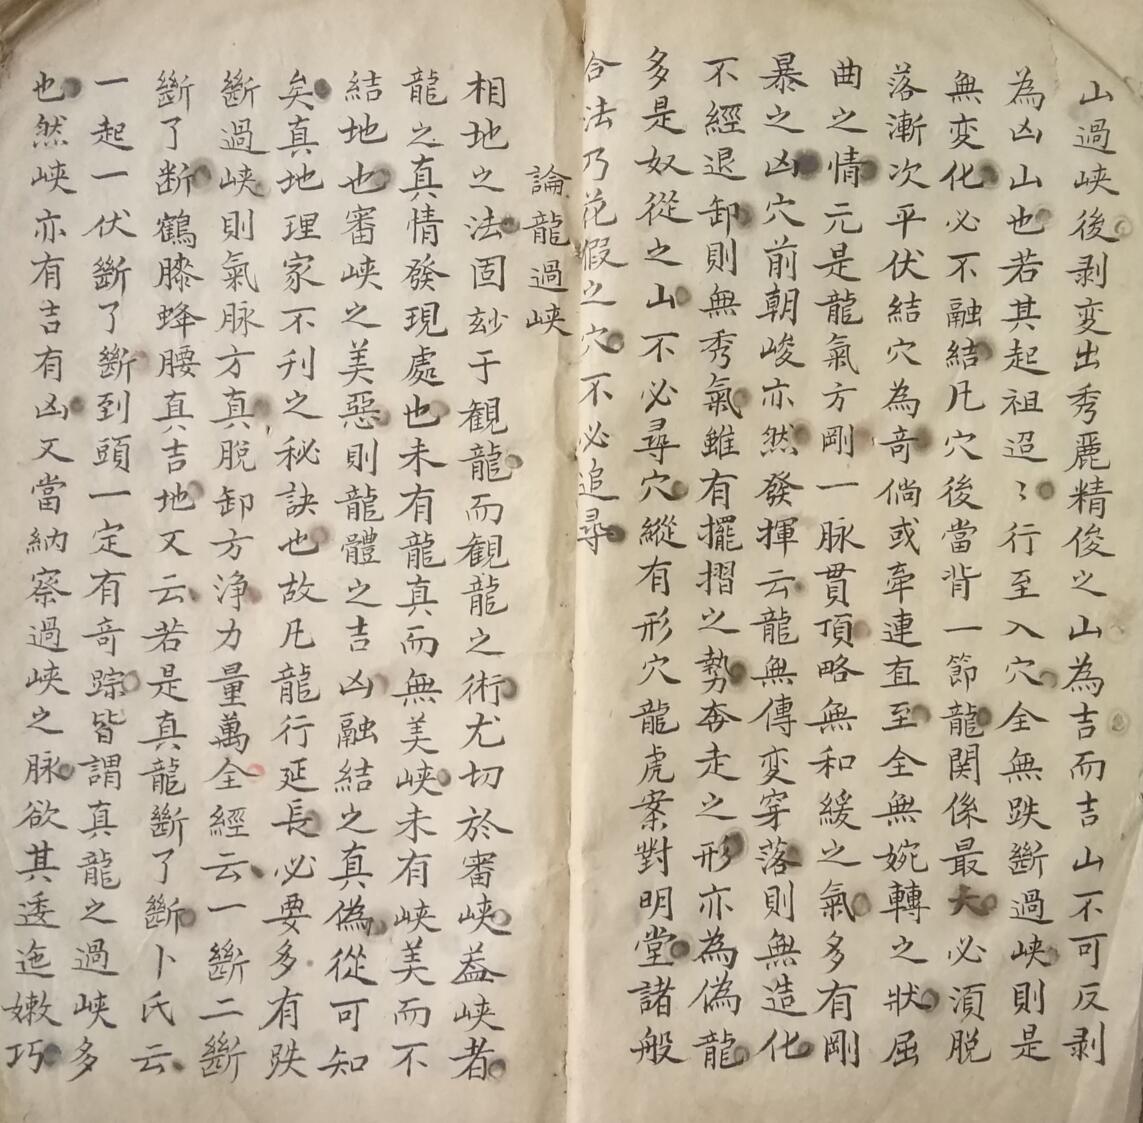 山過峽後剥变出秀麗精俊之山為吉而吉山不可反剥
為凶山也若其起祖迢〻行至入穴全無跌斷過峽則是
無变化必不融結凡穴後當背一節龍関係最大必湏脫
落漸次平伏結穴為竒倘或牽連直至全無婉轉之狀屈
曲之情元是龍氣方剛一脉貫頂略無和緩之氣多有剛
暴之凶穴前朝峻亦然發揮云龍無傳变穿落則無造化
不經退卸則無秀氣雖有擺摺之勢奔走之形亦為偽龍
多是奴從之山不必尋穴縱有形穴龍虎案對明堂諸般
合法乃花假之穴不必追尋
論龍過峽
相地之法固玅于観龍而観龍之術尤切於審峽盖峽者
龍之真情發現處也未有龍真而無美峽未有峽美而不
結地也審峽之美惡則龍體之吉凶融結之真偽從可知
矣真地理家不刋之秘訣也故凡龍行延長必要多有跌
斷過峽則氣脉方真脫卸方净力量萬全經云一斷二斷
斷了断鶴膝蜂腰真吉地又云若是真龍斷了斷卜氏云
一起一伏斷了斷到頭一定有竒踪皆謂真龍之過峽多
也然峽亦有吉有凶又當納察過峽之脉欲其逶迤嫩巧